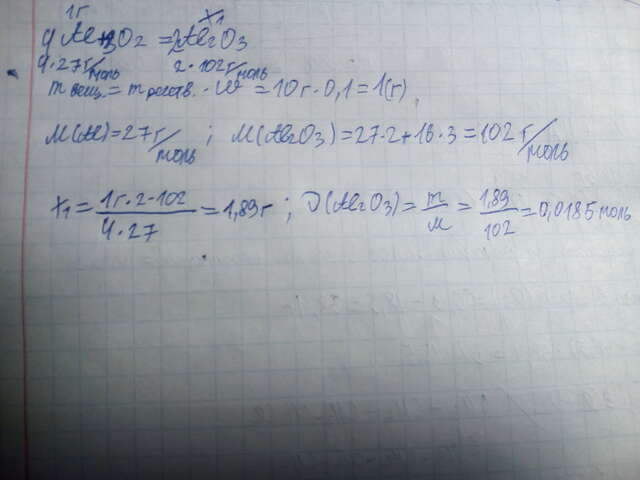 1г x₁
4Al+3O₂ = 2Al₂O₃
4·27 г/моль 2·102 г/моль
m вещ. = m раств. · W = 10г·0,1 = 1(г)
M(Al)=27 г/моль ; M(Al₂O₃)=27·2+16·3=102 г/моль
x₁ = 1г·2·102 / 4·27 = 1,89г ; ν(Al₂O₃) = m/M = 1,89/102 = 0,0185 моль